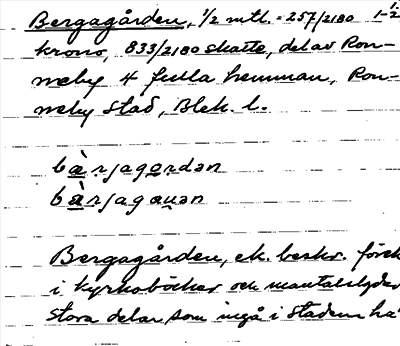 Bergagården, 1/2 mtl. = 257/2180 1-1/2
krono, 833/2180 skatte, del av Ron-
neby 4 fulla hemman, Ron-
neby stad, Blek. l.
bàrjagordən
bàrjagauən
Bergagården, ek. beskr. förek
i kyrkoböcker och mantalslgder
stora delar, som ingå i stadens ha